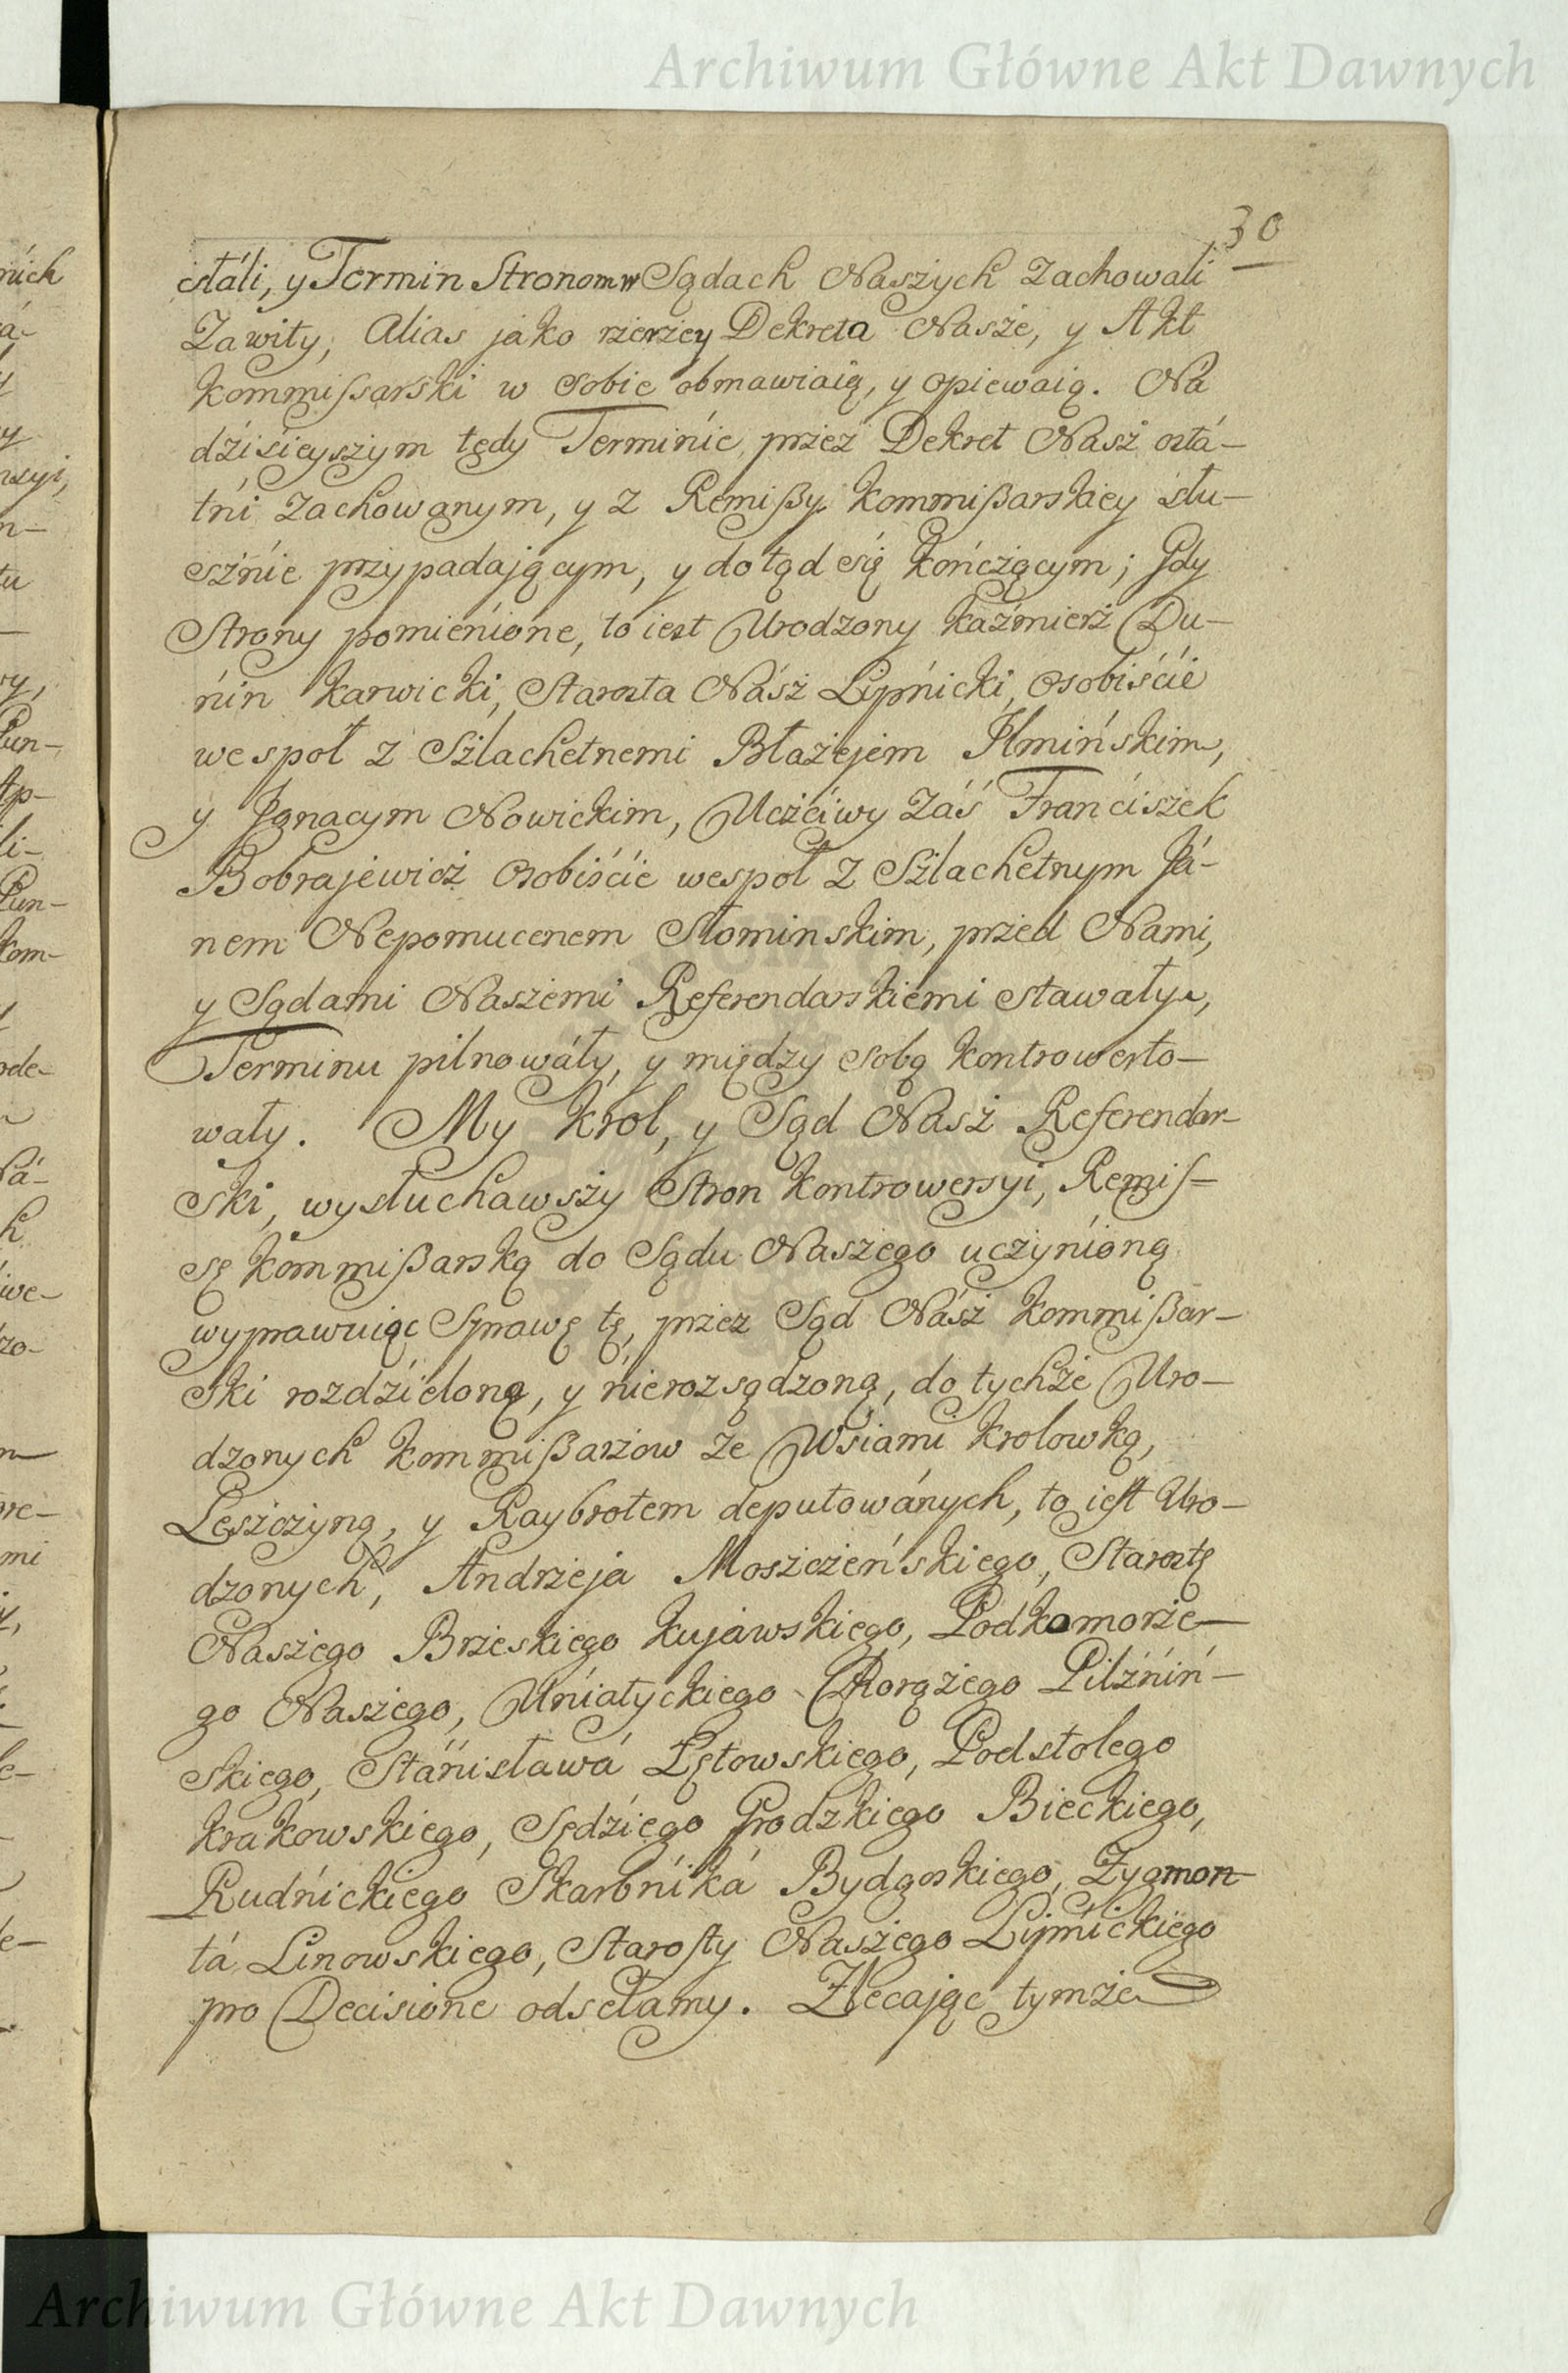 Archiwum Główne Akt Dawnych
30
słáli, y Termin Stronom w Sądach Naszych zachowali
Zawity, Alias jako rzerzey Dekreta Nasze, y Akt
Kommißarski w sobie obmawiaią, y opiewaią. Na
dźisieyszym tędy Terminie przez Dekret Nasz ostá-
tni zachowanym, y z Remißy Kommißarskiey słu-
sznie przypadaiącym, y dotąd się kończącym; Gdy
Strony pomienione, to iest Urodzony Kaźmierz Du-
nin Karwicki, Starosta Nász Lipnicki, osobiście
wespoł z Szlachetnemi Błażejem Jlmińskim,
y Jgnacym Nowickim, Uczciwy záś Franciszek
Bobrajewicz osobiście wespoł z Szlachetnym Já-
nem Nepomucenem Słominskim, przed Nami,
y Sądami Naszemi Referendarskiemi stawały,
Terminu pilnowáły, y między sobą kontrowerto-
wały. My Krol, y Sąd Nasz Referendar-
ski, wysłuchawszy Stron Kontrowersyi, Remis-
sę Kommißarską do Sądu Naszego uczynioną
wyprawuiąc Sprawę tę, przez Sąd Násż Kommißar-
ski rozdzieloną, y nierozsądzoną, do tychże Uro-
dzonych Kommißarzow ze Wsiami Krolowką,
Leszczyną, y Raybrotem deputowánych, to iest Uro-
dzonych, Andrzeja Moszczeńskiego, Starostę
Naszego Brzeskiego Kujawskiego, Podkomorze-
go Naszego, Uniatyckiego Chorążego Pilźniń-
skiego, Stánisławá Łętowskiego, Podstolego
Krakowskiego, Sędźiego Grodzkiego Bieckiego,
Rudnickiego Skarbniká Bydgoskiego, Zygmon-
tá Linowskiego, Starosty Naszego Lipnickiego
pro Decisione odsełamy. Zlecając tymże
Archiwum Główne Akt Dawnych